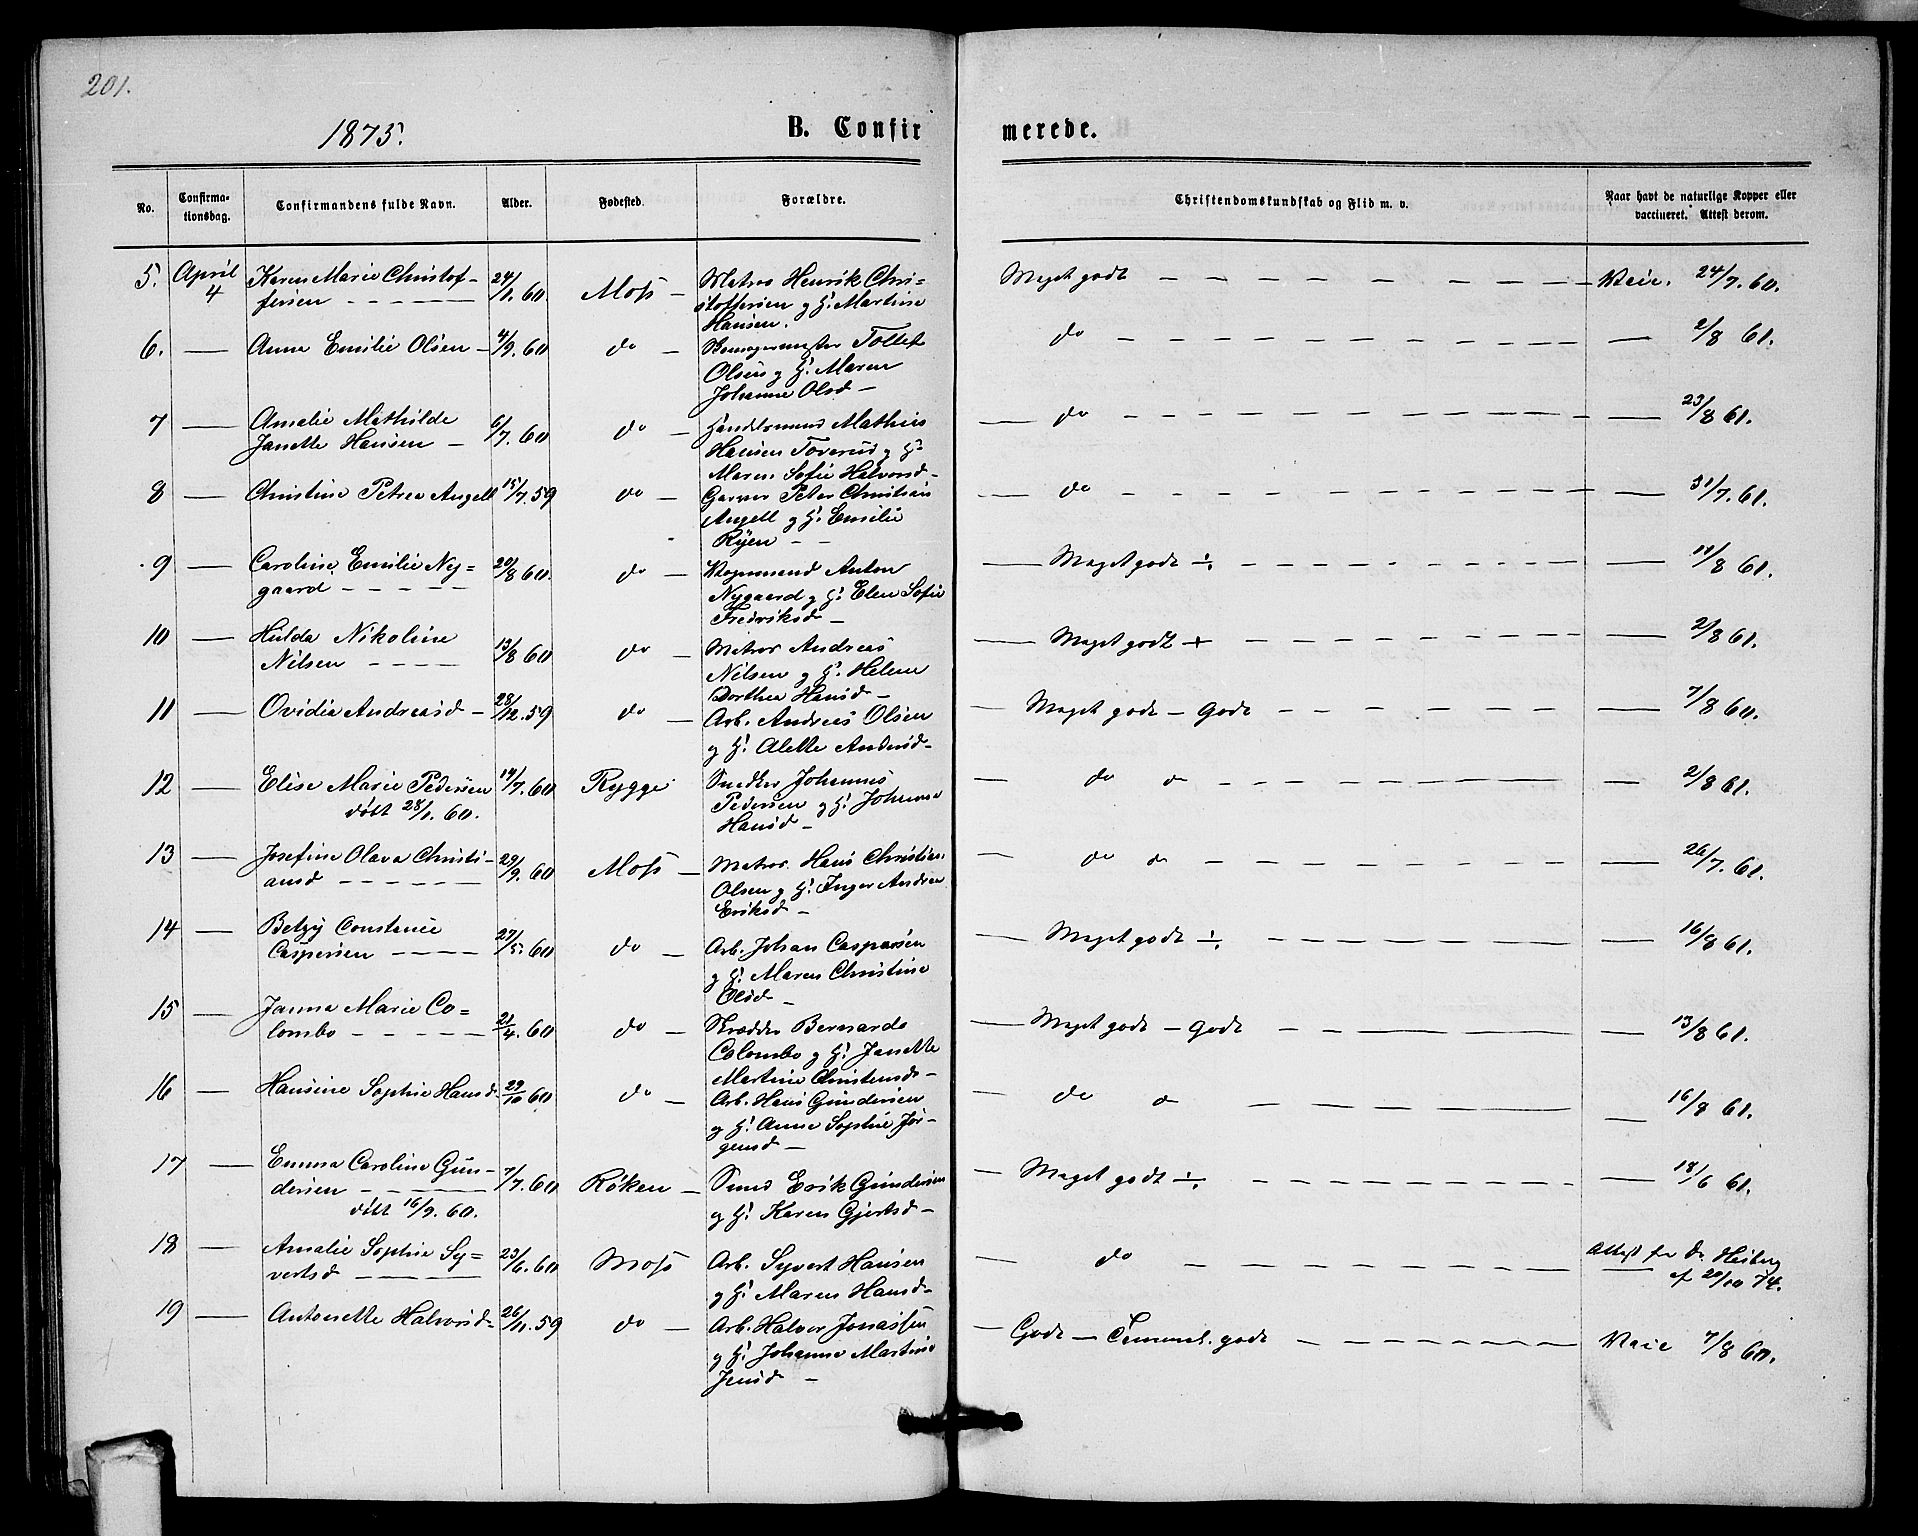 201.
1875.
B. Confir
merede.
No.
Confirma-
tionsdag.
Confirmandens fulde Navn.
Alder.
Fødested.
Forældre.
Christendomskundskab og Flid m. v.
Naar havt de naturlige Kopper eller
vaccineret. Attest derom.
5. April 4
Karen Marie Christof-
fersen
24/1. 60.
Moss
Matros Henrik Chri-
stoffersen og H. Martine
Hansen.
Meget godt
Vacc. 24/7. 60.
6.
Anna Emilie Olsen
4/9. 60
do
Tollef
Olsen og H. Maren
Johanne Olsd
do
2/8 61.
7
Amalie Mathilde
Janette Hansen
6/7. 60
do
Handelsmand Mathias
Hansen Toverud og H.
Maren Sofie Halvorsd
do
23/8 61.
8
Christine Petrea Angell
15/7. 59
do
Garver Peter Christian
Angell og H. Emilie
Ryen
do
31/7. 61.
9
Caroline Emilie Ny=
gaard
20/8 60.
do
Vognmand Anton
Nygaard og H. Elen Sofie
Fredriksd
Meget godt ÷
19/8 61.
10
Hulda Nikoline
Nilsen
13/8 60
do
Matros Andreas
Nilsen og H. Helene
Dorthea Hansd
Meget godt +
2/8 61.
11
Ovidia Andreasd
28/12. 59
do
Arb. Andreas Olsen
og H. Alette Andersd
Meget godt - Godt
7/8 60.
12
Elise Marie Pedersen
døbt 28/1. 60.
14/7. 60
Rygge
Snedker Johannes
Pedersen og H. Johanne
Hansd
do do
2/8 61.
13
Josefine Olava Christi-
ansd
29/9. 60
Moss
Matros Hans Christian
Olsen og H. Inger Andrea
Eriksd
do do
26/7. 61.
14
Betzy Constance
Caspersen
27/5. 60
do
Arb. Johan Caspersen
og H. Maren Christine
Olsd
Meget godt ÷
16/8 61.
15
Janna Marie Co=
lombo
21/4. 60
do
Skrædder Bernardo
Colombo og H. Janette
Martine Christensd
Meget godt - Godt
13/8 61.
16
Hansine Sophie Hansd
29/10 60
do
Arb. Hans Gundersen
og H. Anne Sophie Jør-
gensd
do do
16/8 61.
17
Emma Caroline Gun-
dersen
døbt 16/9. 60.
7/7. 60
Røken
Smed Erik Gundersen
og H. Karen Gjertsd
Meget godt ÷
18/6 61.
18
Amalie Sophie Sy=
vertsd
23/6. 60
Moss
Arb. Syvert Hansen
og H. Maren Hansd
do
Attest fra Dr. Heiberg
af 20/10 74.
19
Antonette Halvorsd
26/11. 59
do
Arb. Halvor Jonassen
og H. Johanne Martine
Jensd
Godt - Temmel. godt
Vacc 7/8 60.